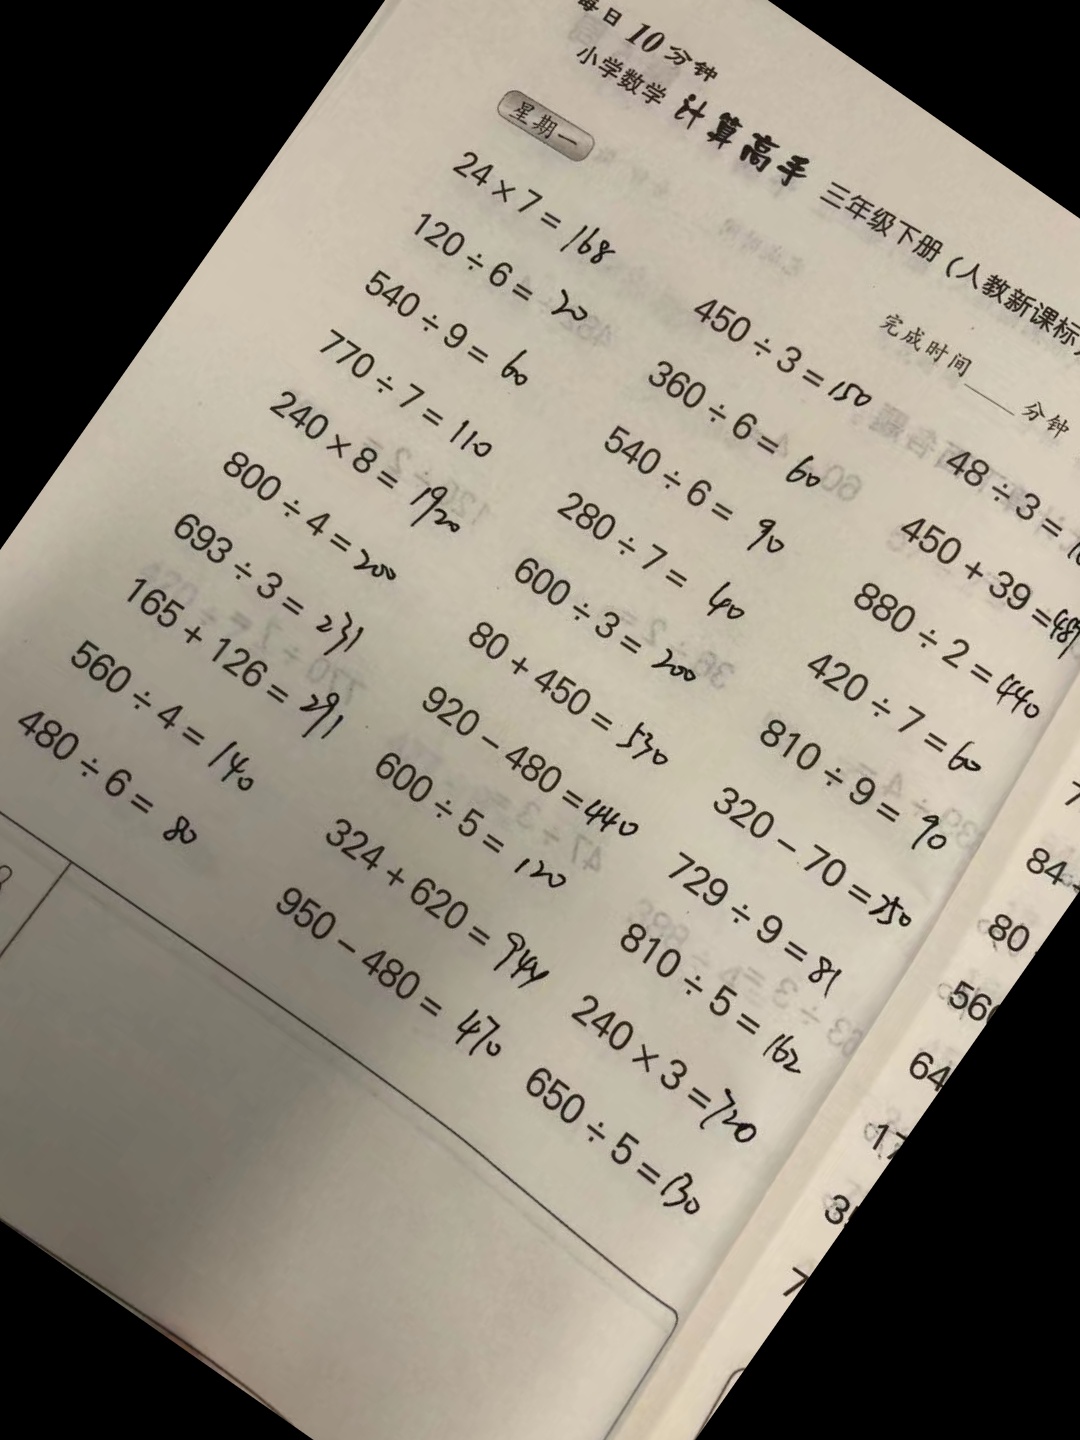 每日10分钟
小学数学 计算高手 三年级下册(人教新课标
星期一
完成时间____分钟
24×7=168
120÷6=20
540÷9=60
770÷7=110
240×8=1920
800÷4=200
693÷3=231
165+126=291
560÷4=140
480÷6=80
450÷3=150
360÷6=60
540÷6=90
280÷7=40
600÷3=200
80+450=530
920-480=440
600÷5=120
324+620=944
950-480=470
48÷3=
450+39=489
880÷2=440
420÷7=60
810÷9=90
320-70=250
729÷9=81
810÷5=162
240×3=720
650÷5=130
84
80
56
64
17